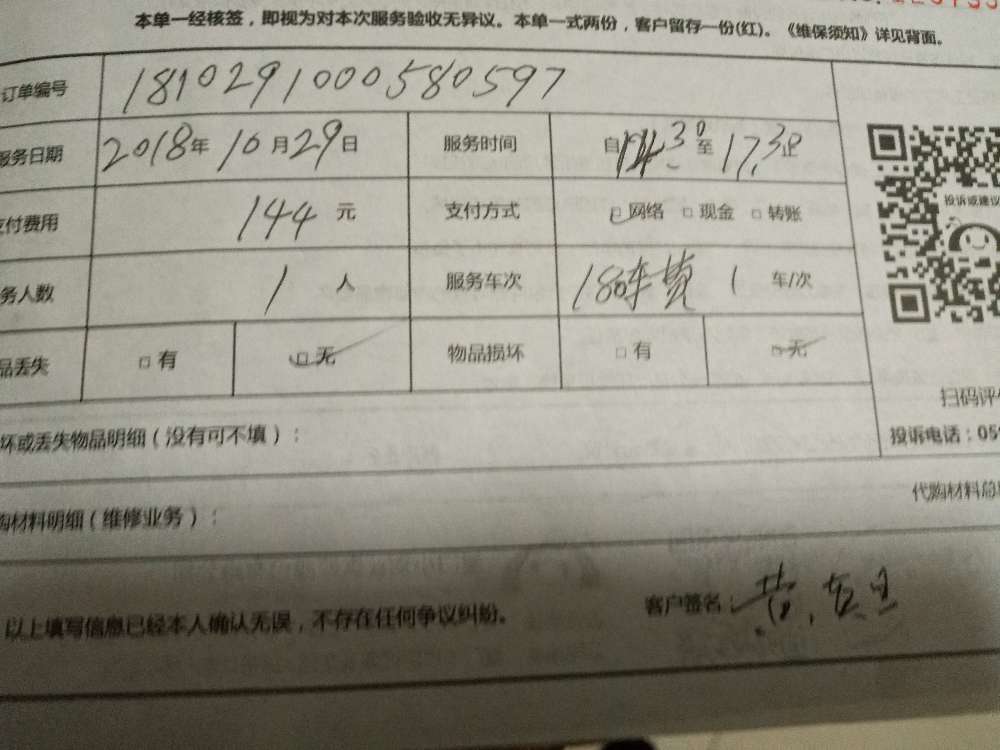 本单一经核签，即视为对本次服务验收无异议。本单一式两份，客户留存一份(红)。《维保须知》详见背面。
订单编号 1810291000580597
服务日期 2018年 10月29日 服务时间 自 14:30 至 17:30止
支付费用 144 元 支付方式 □网络 □现金 □转账
务人数 1 人 服务车次 180车费 1 车/次
品丢失 □有 □无 物品损坏 □有 □无
投诉或建议
扫码评
坏或丢失物品明细（没有可不填）：
投诉电话：05
代购材料总
购材料明细（维修业务）：
以上填写信息已经本人确认无误，不存在任何争议纠纷。 客户签名：